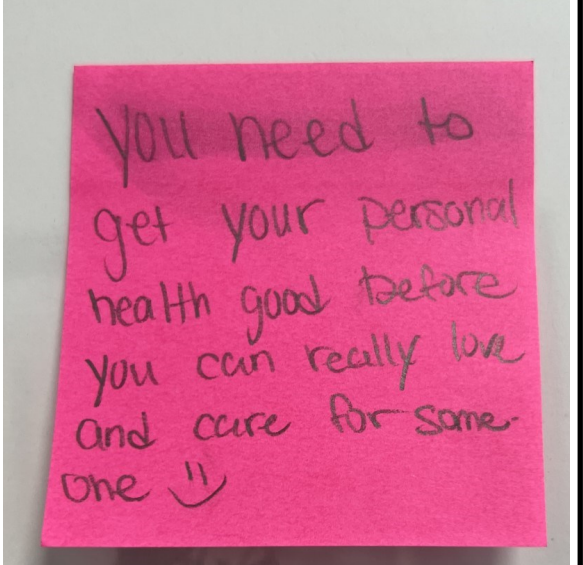 you need to
get your personal
health good before
you can really love
and care for some-
one